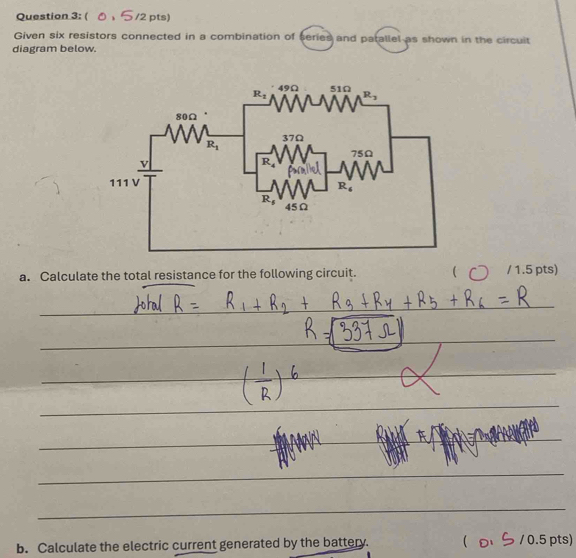 Question 3: ( 0.5/2 pts)
Given six resistors connected in a combination of series and parallel as shown in the circuit
diagram below.
R₂ 49Ω 51Ω R₃
80Ω
R₁
37Ω
R₄ parallel 75Ω
V
111 V
R₅ R₆
45Ω
a. Calculate the total resistance for the following circuit. ( 0 / 1.5 pts)
total R = R1 + R2 + R3 + R4 + R5 + R6 = R
R = 337 Ω
(1/R)^6
b. Calculate the electric current generated by the battery. ( 0.5 / 0.5 pts)